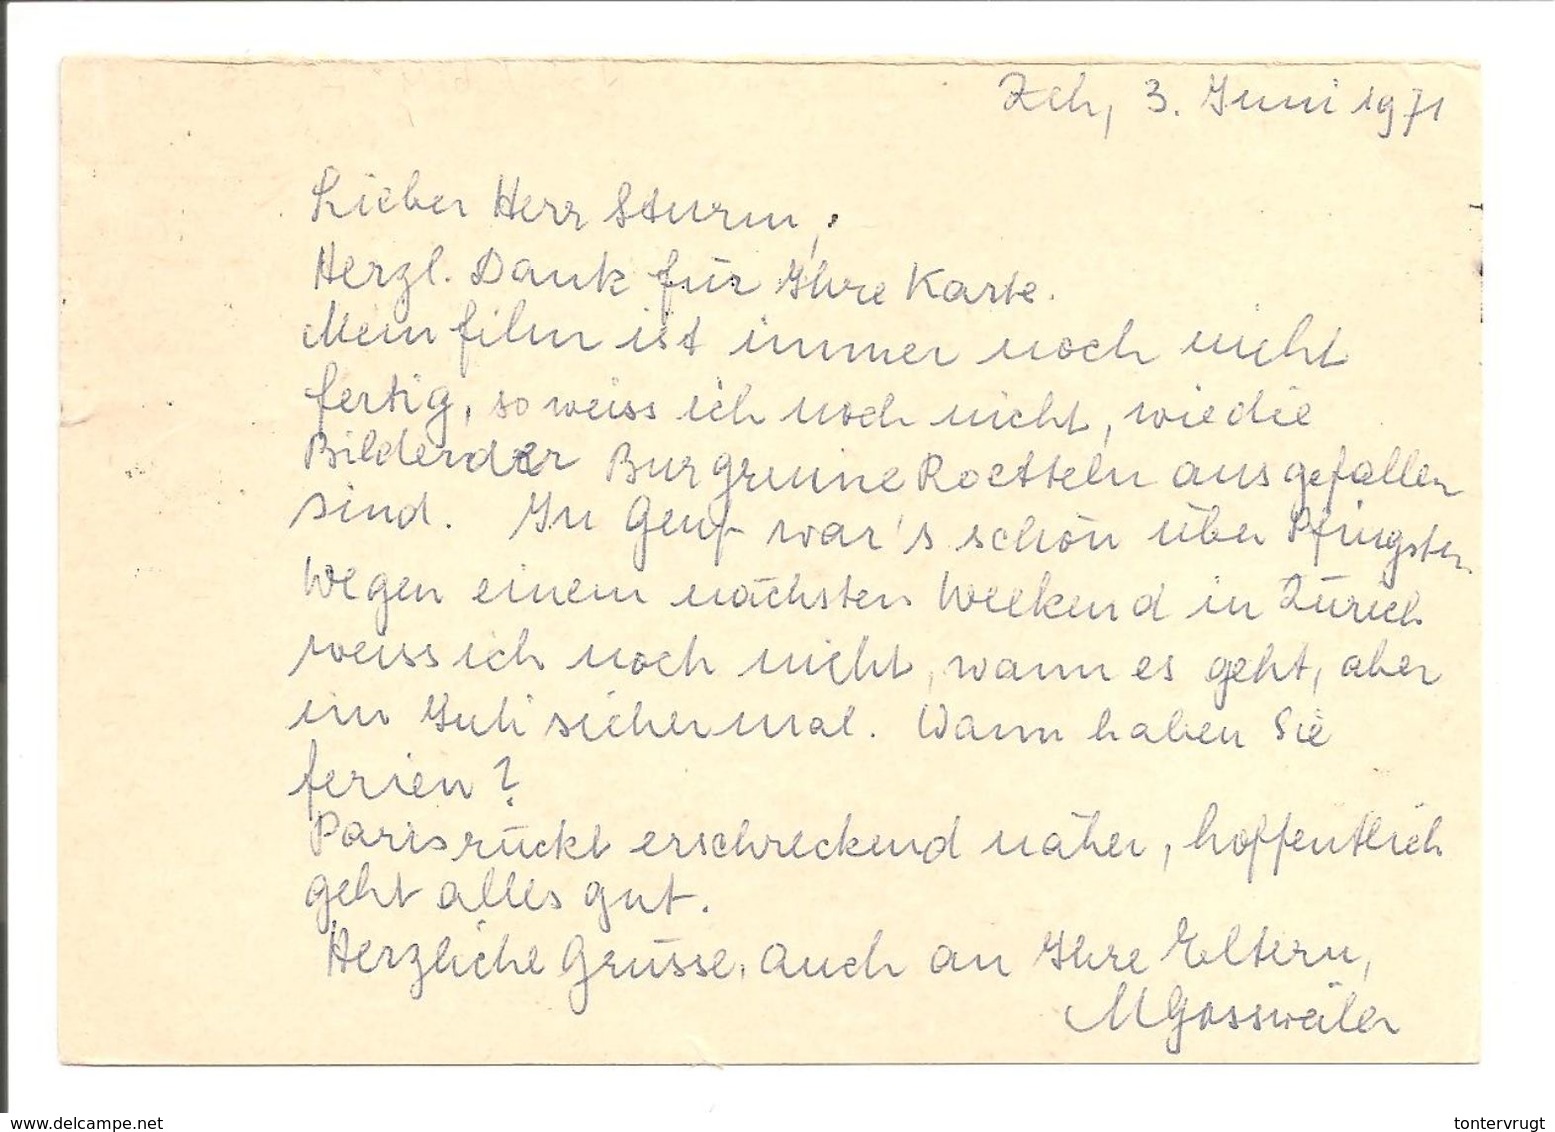 Zch, 3. Juni 1971
Lieber Herr Sturm,
Herzl. Dank für Ihre Karte.
Mein Film ist immer noch nicht
fertig, so weiss ich noch nicht, wie die
Bilder der Burgruine Roetteln ausgefallen
sind. In Genf war's schön über Pfingsten.
Wegen einem nächsten Weekend in Zürich
weiss ich noch nicht, wann es geht, aber
im Juli sicher mal. Wann haben Sie
Ferien?
Paris rückt erschreckend näher, hoffentlich
geht alles gut.
Herzliche Grüsse, auch an Ihre Eltern,
MGossweiler
www.delcampe.net
tontervrugt